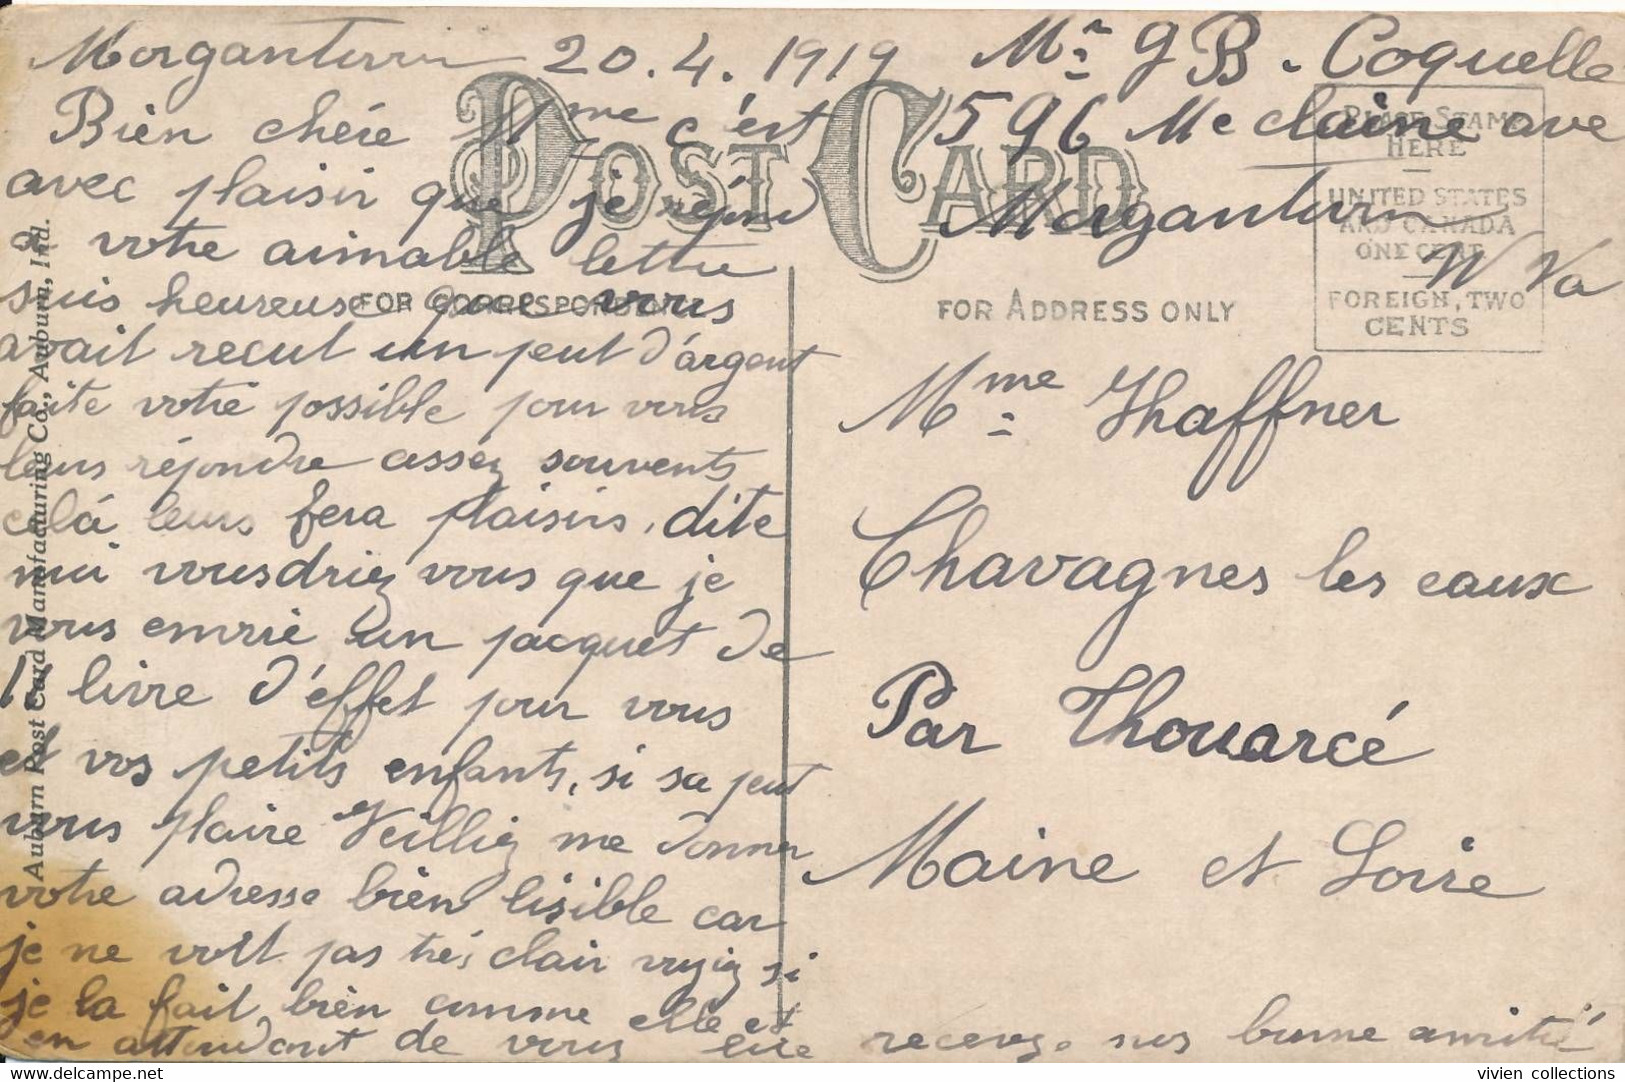 Morganturn 20.4.1919
Bièn chére Mme c'est
avec plaisir que je répond
à votre aimable lettre
suis heureuse que vous
avait recut un peut d'argent
faite votre possible pour vous
leurs répondre assez souvents
celá leurs fera plaisirs, dite
moi vousdriez vous que je
vous envoie un pacquet de
livre d'effet pour vous
et vos petits enfants, si sa peut
vous plaire Veilliez me donner
votre adresse bièn lisible car
je ne voit pas trés clair voyiez si
je la fait bièn comme elle et
en attendant de vous lire recevez nos bonne amitié
Mr J B. Coquelle
596 Mc claine ave
Morganturn
W Va
POST CARD
FOR CORRESPONDENCE
FOR ADDRESS ONLY
PLACE STAMP
HERE
UNITED STATES
AND CANADA
ONE CENT
FOREIGN, TWO
CENTS
Mme Thaffner
Chavagnes les eaux
Par Thouarcé
Maine et Loire
Auburn Post Card Manufacturing Co., Auburn, Ind.
www.delcampe.net
vivien collections